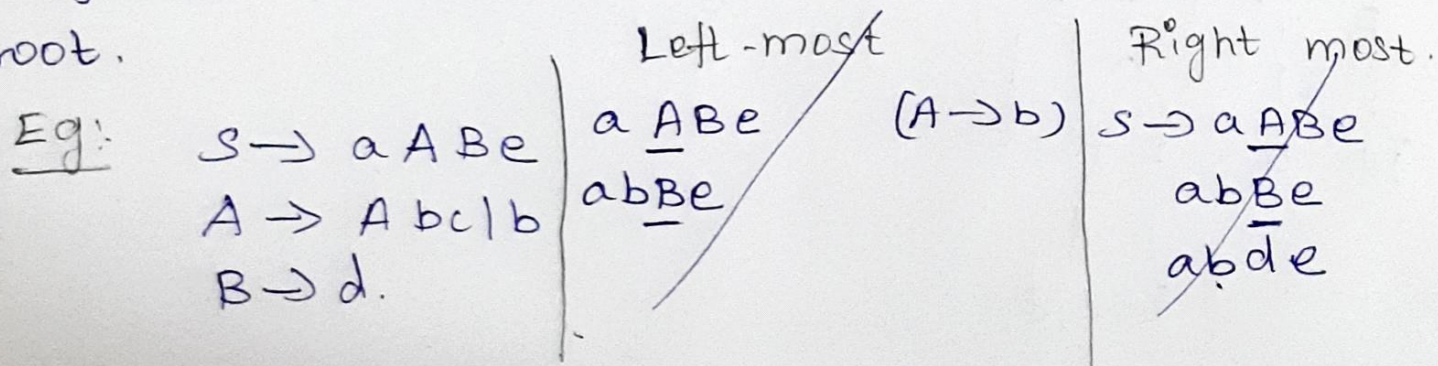 root.
Eg:
S → a A B e
A → A b c | b
B → d.
Left-most
a A B e (A → b)
a b B e
Right most.
S → a A B e
a b B e
a b d e